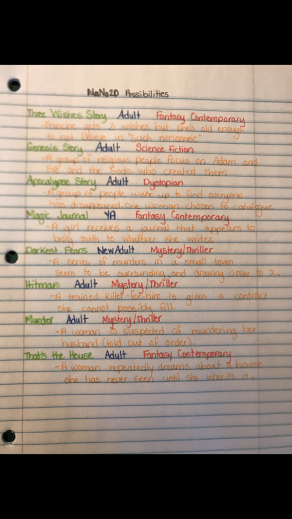 NaNo20 Possibilities
Three Wishes Story Adult Fantasy Contemporary
- gets 3 wishes but she's old enough
to not believe in "such nonsense"
Genesis Story Adult Science Fiction
- A group of religious people focus on Adam and
Eve and the who created them
Apocalypse Story Adult Dystopian
- people wake up to find everyone
has disappeared one woman chosen to catalogue
Magic Journal YA Fantasy Contemporary
- A girl receives a journal that appears to
truth to whatever she writes
Darkest Fears New Adult Mystery/Thriller
- A series of murders in a small town
seem to be surrounding and drawing closer to X
Hitman Adult Mystery/Thriller
- A trained killer-for-hire is given a contract
she cannot possibly fill
Murder Adult Mystery/Thriller
- A woman is suspected of murdering her
husband (told out of order)
That's the House Adult Fantasy Contemporary
- A woman repeatedly dreams about a house
she has never seen until she inherits it.